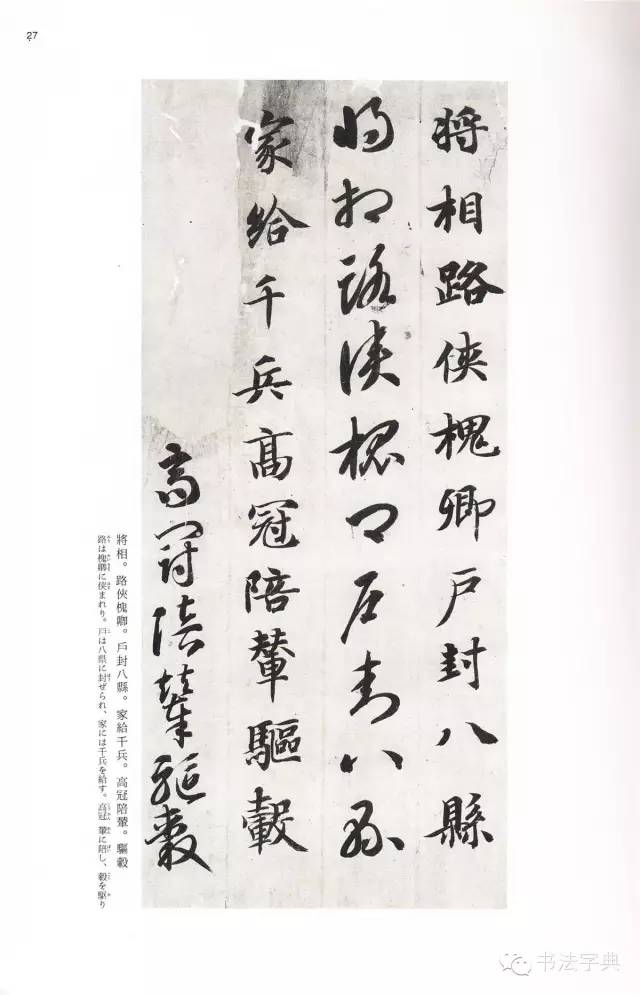 27
将相路俠槐卿戶封八縣
将相路俠槐卿戶封八縣
家給千兵高冠陪輦驅轂
高冠陪輦驅轂
將相。路俠槐卿。戶封八縣。家給千兵。高冠陪輦。驅轂
路は槐卿に俠まれり。戶は八県に封ぜられ、家には千兵を給す。高冠 輦に陪し、轂を駆り
书法字典